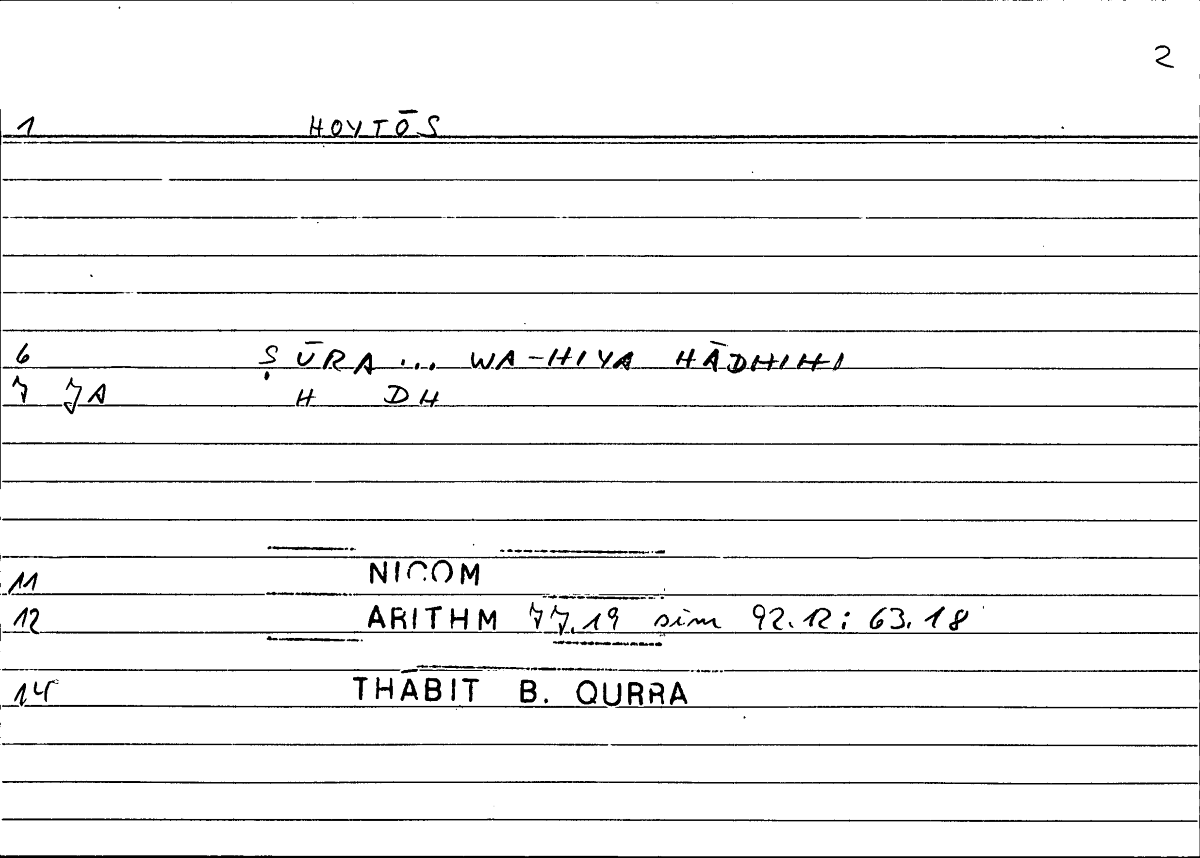 2
1 HOYTŌS
6 ṢŪRA ... WA-HIYA HĀDHIHI
7 7A H DH
11 NICOM
12 ARITHM 77.19 sim 92.12; 63.18
14 THĀBIT B. QURRA